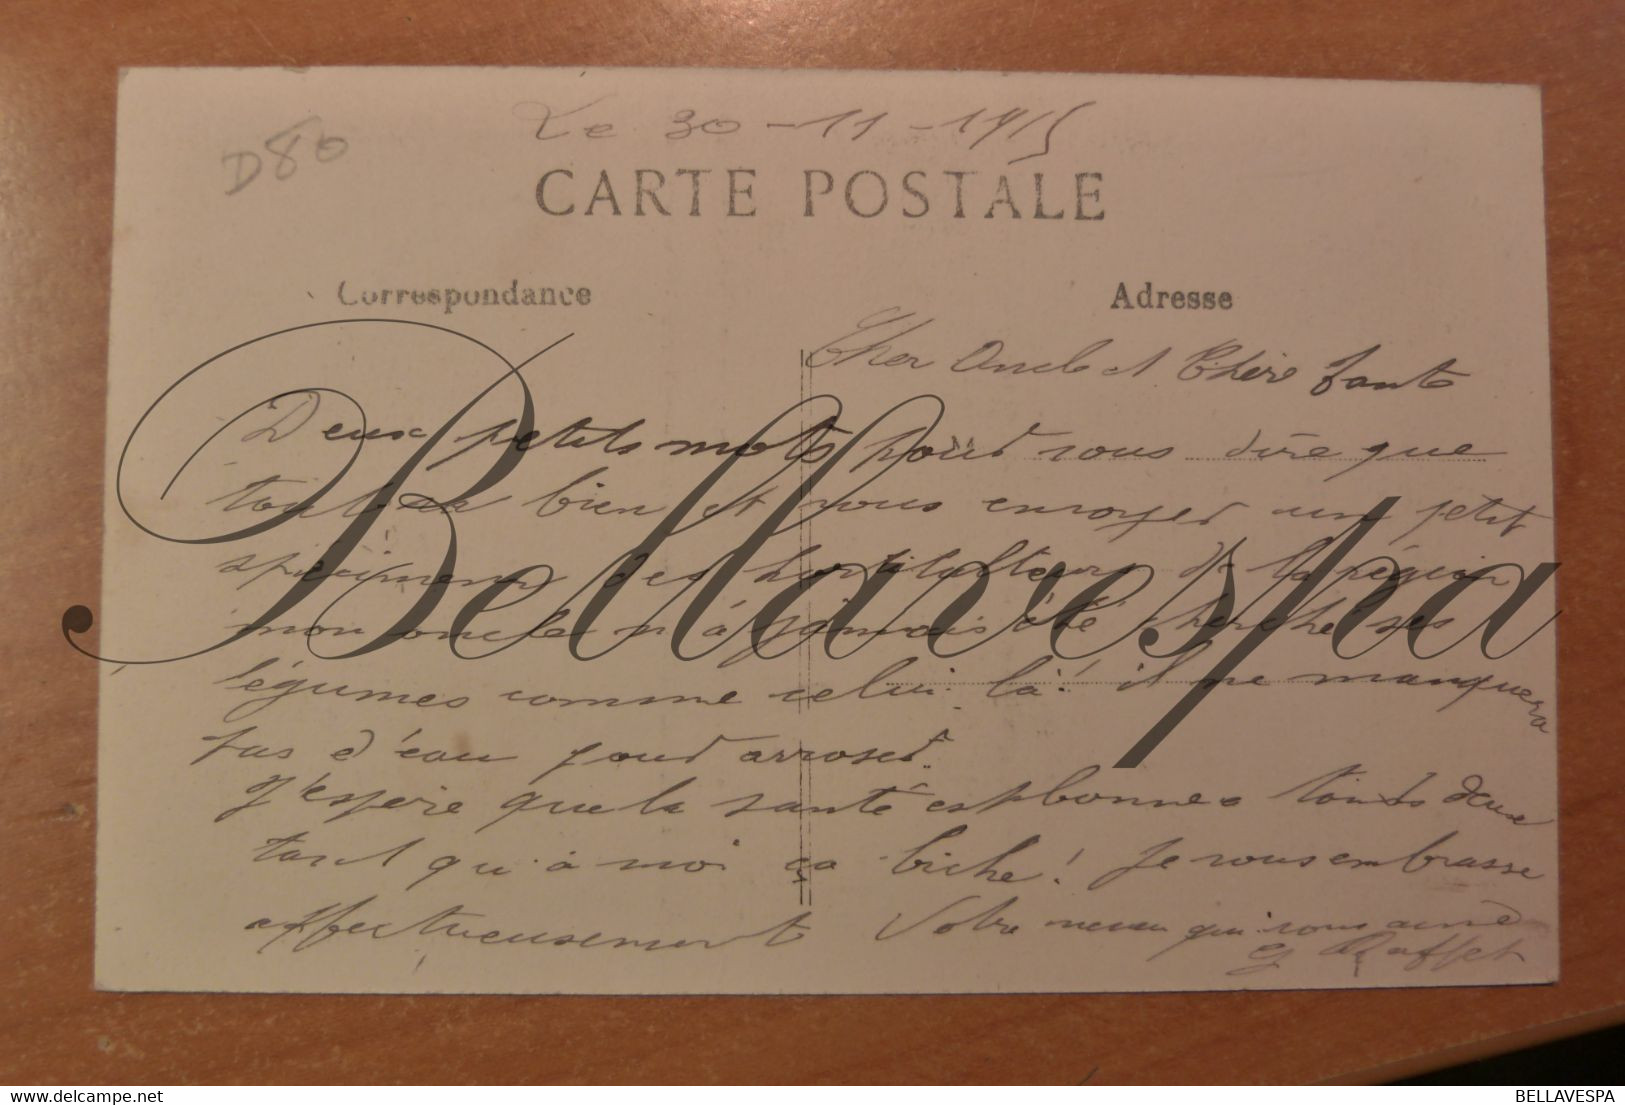 Le 30-11-1915
D80
CARTE POSTALE
Correspondance
Adresse
Cher Oncle et Chère Tante
Deux petits mots pour vous dire que
tout va bien et vous envoyer un petit
spécimen des hortilulteurs de la région
mon oncle n'a jamais été cherché ses
légumes comme celui là! il ne manquera
pas d'eau pour arroser.
J'espère que la santé est bonne à touts deux
tant qu'à moi ça biche! Je vous embrasse
affectueusement Votre neveu qui vous aime
G Raffet
Bellavespa
delcampe.net
BELLAVESPA